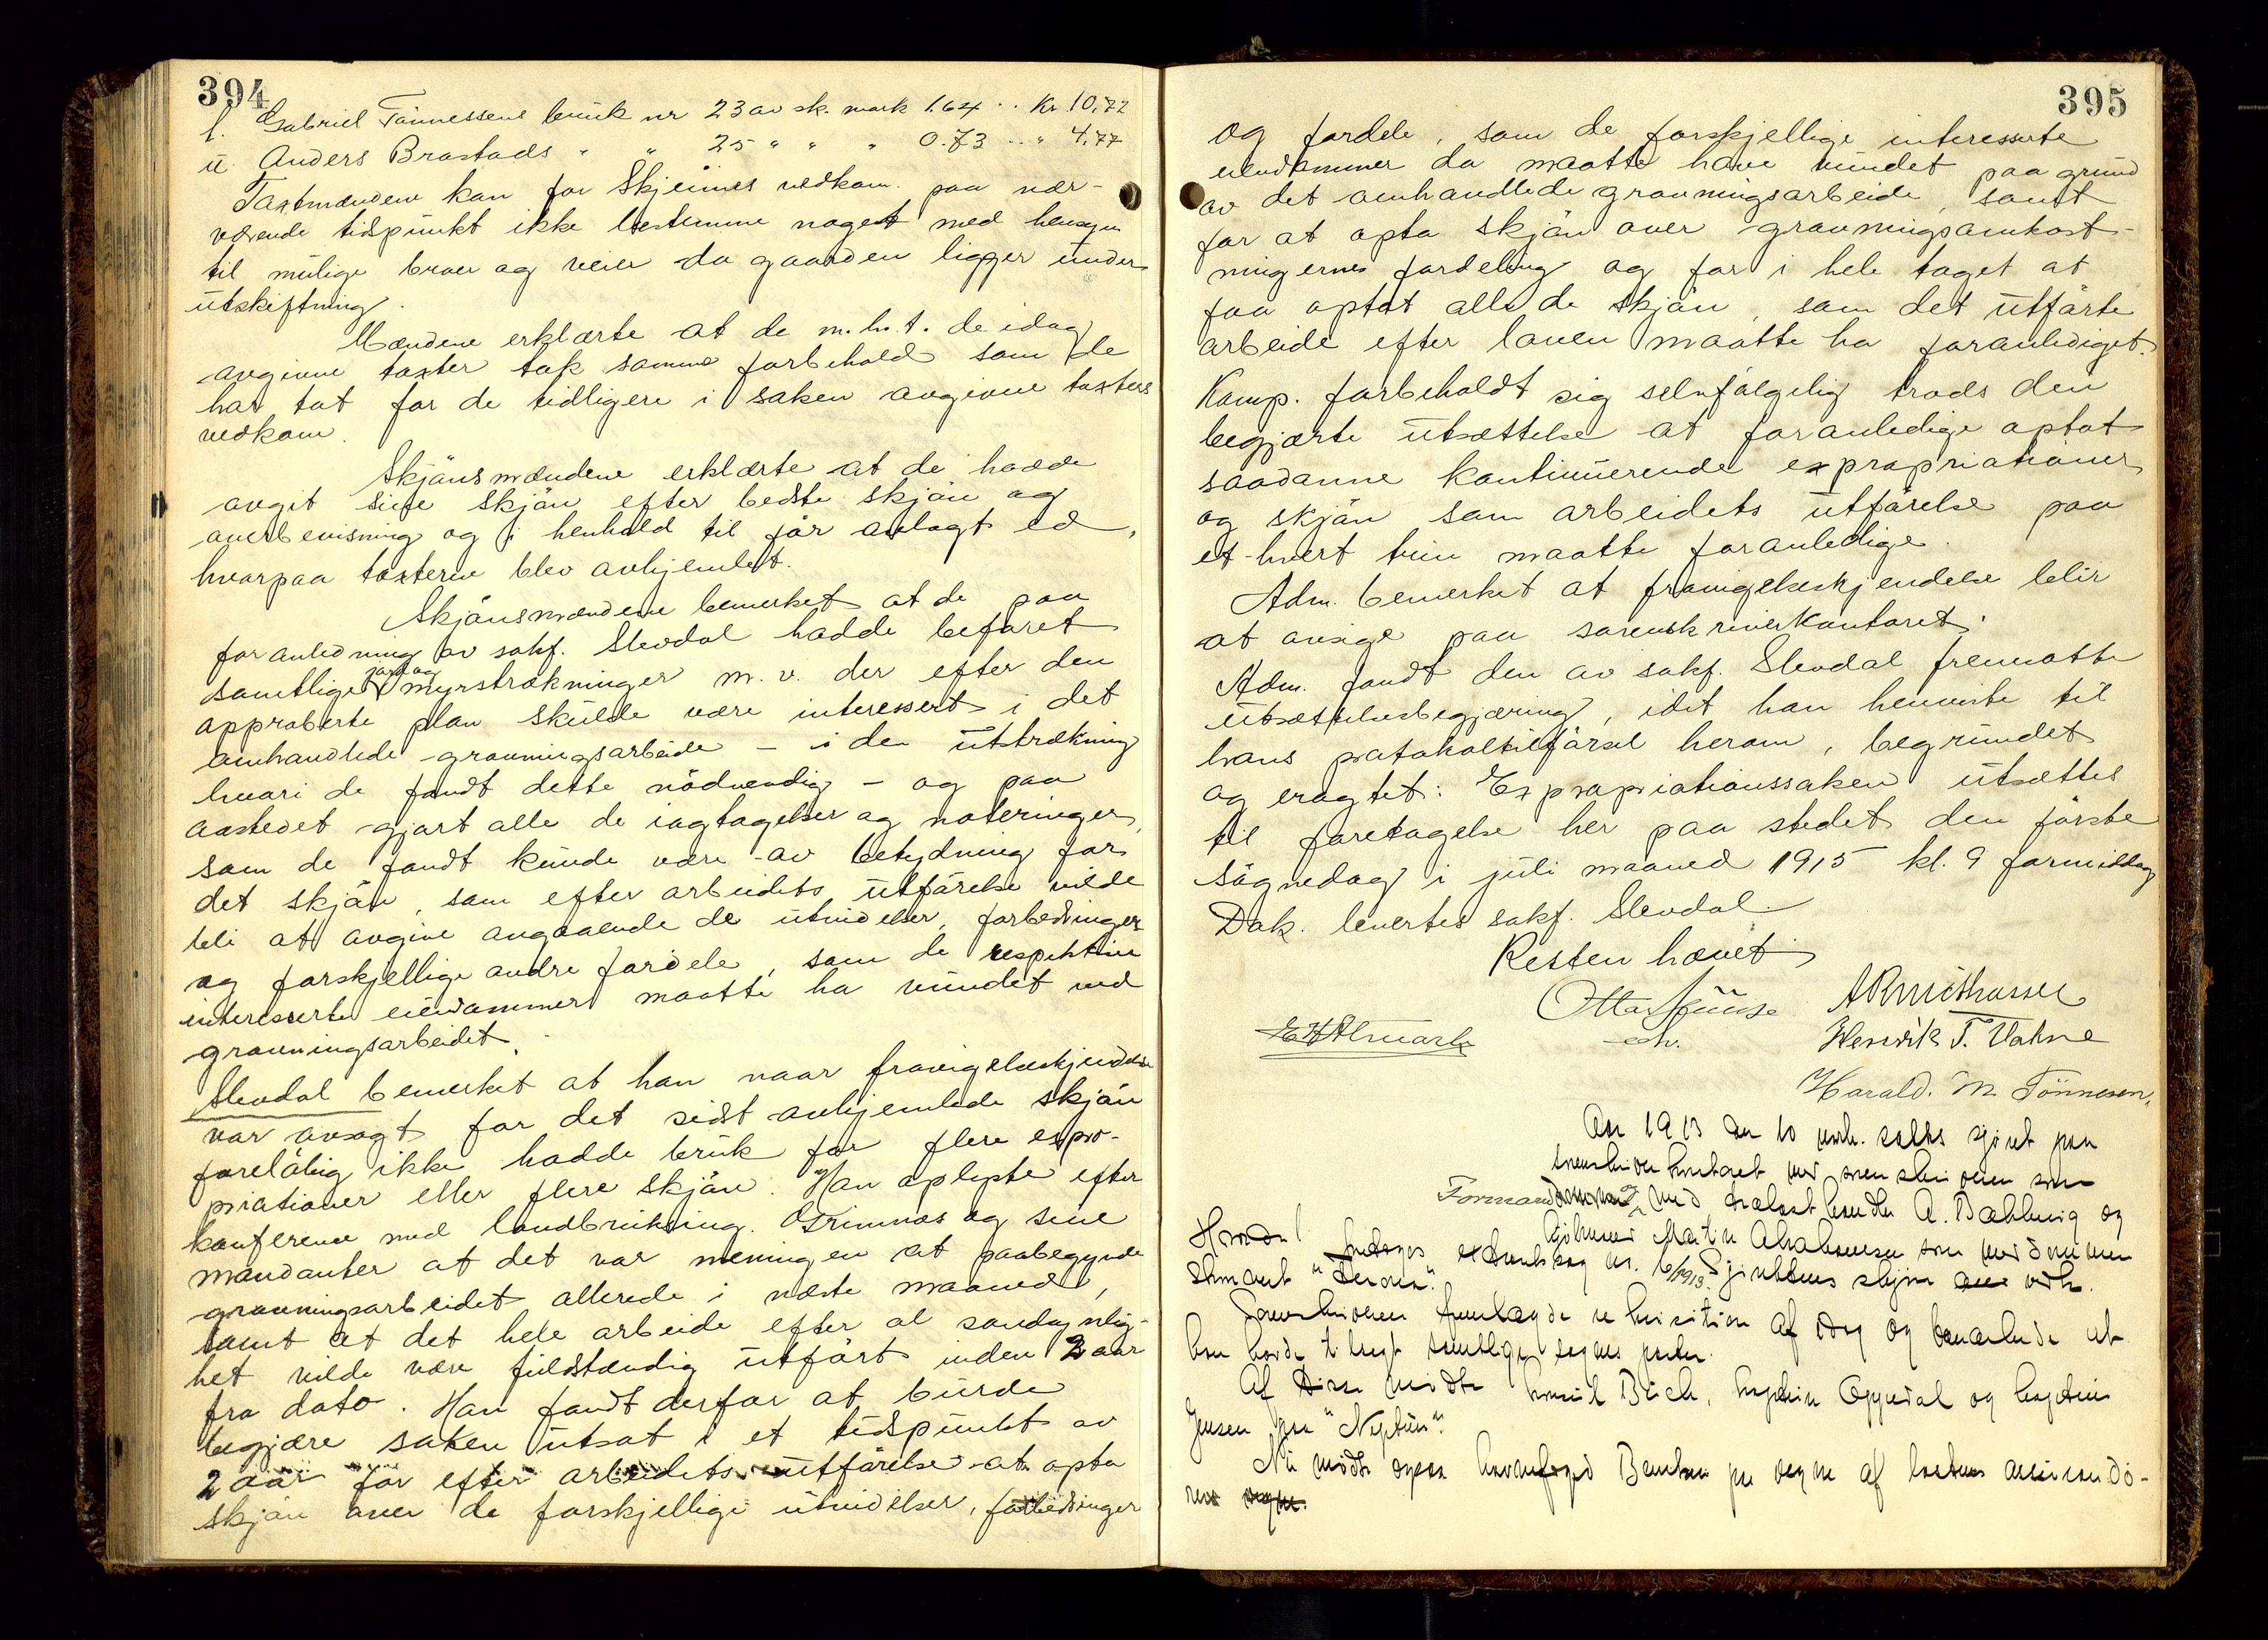 394
l. Gabriel Tönnessens bruk nr 23 av sk. mark 1.64 .. Kr. 10,72
u. Anders Brastads " " 25 " " " 0.73 .. " 4,77
Taxtmændene kan for Skjeiines vedkom. paa nær-
værende tidspunkt ikke bestemme noget med hensyn
til mulige broer og veier da gaarden ligger under
utskiftning.
Mændene erklærte at de m.h.t. de idag
avgivne taxter tok samme forbehold som de
har tat for de tidligere i saken avgivne taxters
vedkom.
Skjönsmændene erklærte at de hadde
avgit sine skjön efter bedste skjön og
overbevisning og i henhold til för avlagt ed,
hvorpaa taxterne blev avhjemlet.
Skjönsmændene bemerket at de paa
foranledning av sakf. Slevdal hadde befaret
samtlige jord og myrstrækninger m.v. der efter den
approberte plan skulde være interessert i det
omhandlede gravningsarbeide – i den utstrækning
hvori de fandt dette nödvendig – og paa
aastedet gjort alle de iagtagelser og noteringer,
som de fandt kunde være av betydning for
det skjön, som efter arbeidets utförelse vilde
bli at avgive angaaende de utvidelser, forbedringer
og forskjellige andre fordele, som de respektive
interesserte eiendommer maatte ha vundet ved
gravningsarbeidet.
Slevdal bemerket at han naar fravigelseskjendelse
var avsagt for det sidst avhjemlede skjön
forelöbig ikke hadde bruk for flere expro-
priationer eller flere skjön. Han oplyste efter
konferense med landbruksing. Grimnes og sine
mandanter at det var meningen at paabegynde
gravningsarbeidet allerede i næste maaned,
samt at det hele arbeide efter al sandsynlig-
het vilde være fuldstændig utfört inden 2 aar
fra dato. Han fandt derfor at burde
begjære saken utsat i et tidspunkt av
2 aar for efter arbeidets utförelse at opta
skjön over de forskjellige utvidelser, forbedringer
395
og fordele, som de forskjellige interesserte
eiendommer da maatte have vundet paa grund
av det omhandlede gravningsarbeide, samt
for at opta skjön over gravningsomkost-
ningernes fordeling og for i hele taget at
faa optat alle de skjön, som det utförte
arbeide efter loven maatte ha foranlediget.
Komp. forbeholdt sig selvfölgelig trods den
begjærte utsættelse at foranledige optat
saadanne kontinuerende expropriationer
og skjön som arbeidets utförelse paa
et hvert trin maatte foranledige.
Adm. bemerket at fravigelseskjendelse blir
at avsige paa sorenskriverkontoret.
Adm. fandt den av sakf. Slevdal fremsatte
utsættelsesbegjæring, idet han henviste til
hans protokoltilförsel herom, begrundet
og eragtet: Expropriationssaken utsættes
til foretagelse her paa stedet den förste
sögnedag i juli maaned 1915 kl. 9 formiddag
Dok. levertes sakf. Slevdal.
Retten hævet.
Henrik T. Vatne
Harald. M. Tönnesen.
Aar 1913 den 10 settes sjöret paa
sorenskriver kontoret med sorenskriveren som
Formand med A. Dakberg og
Martin Abrahamsen som meddommere
Hvorda! foretoges extraretssag nr. 6/1913. Sjørettens skjøn
Sorenskriveren fremlagde rekvisition af idag og bemærkede at
han havde tilsagt samtlige sagens parter.
Af disse mødte konsul Büch, kaptein Oppedal og kaptein
Jensen paa "Neptun".
Nu mødte ogsaa havnefoged paa vegne af